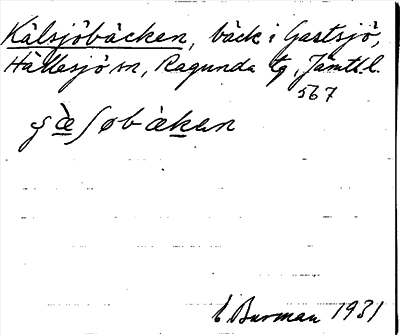 Kälsjöbäcken, bäck i Gastsjö,
Hällesjö sn, Ragunda tg, Jämtl. l.
567
gæ̀ʃøbæken
E Burman 1931